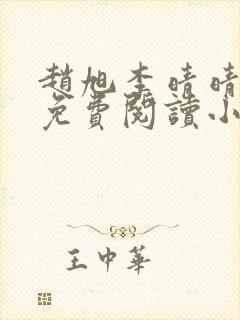 趙旭李晴晴
免費閱讀小
王中華